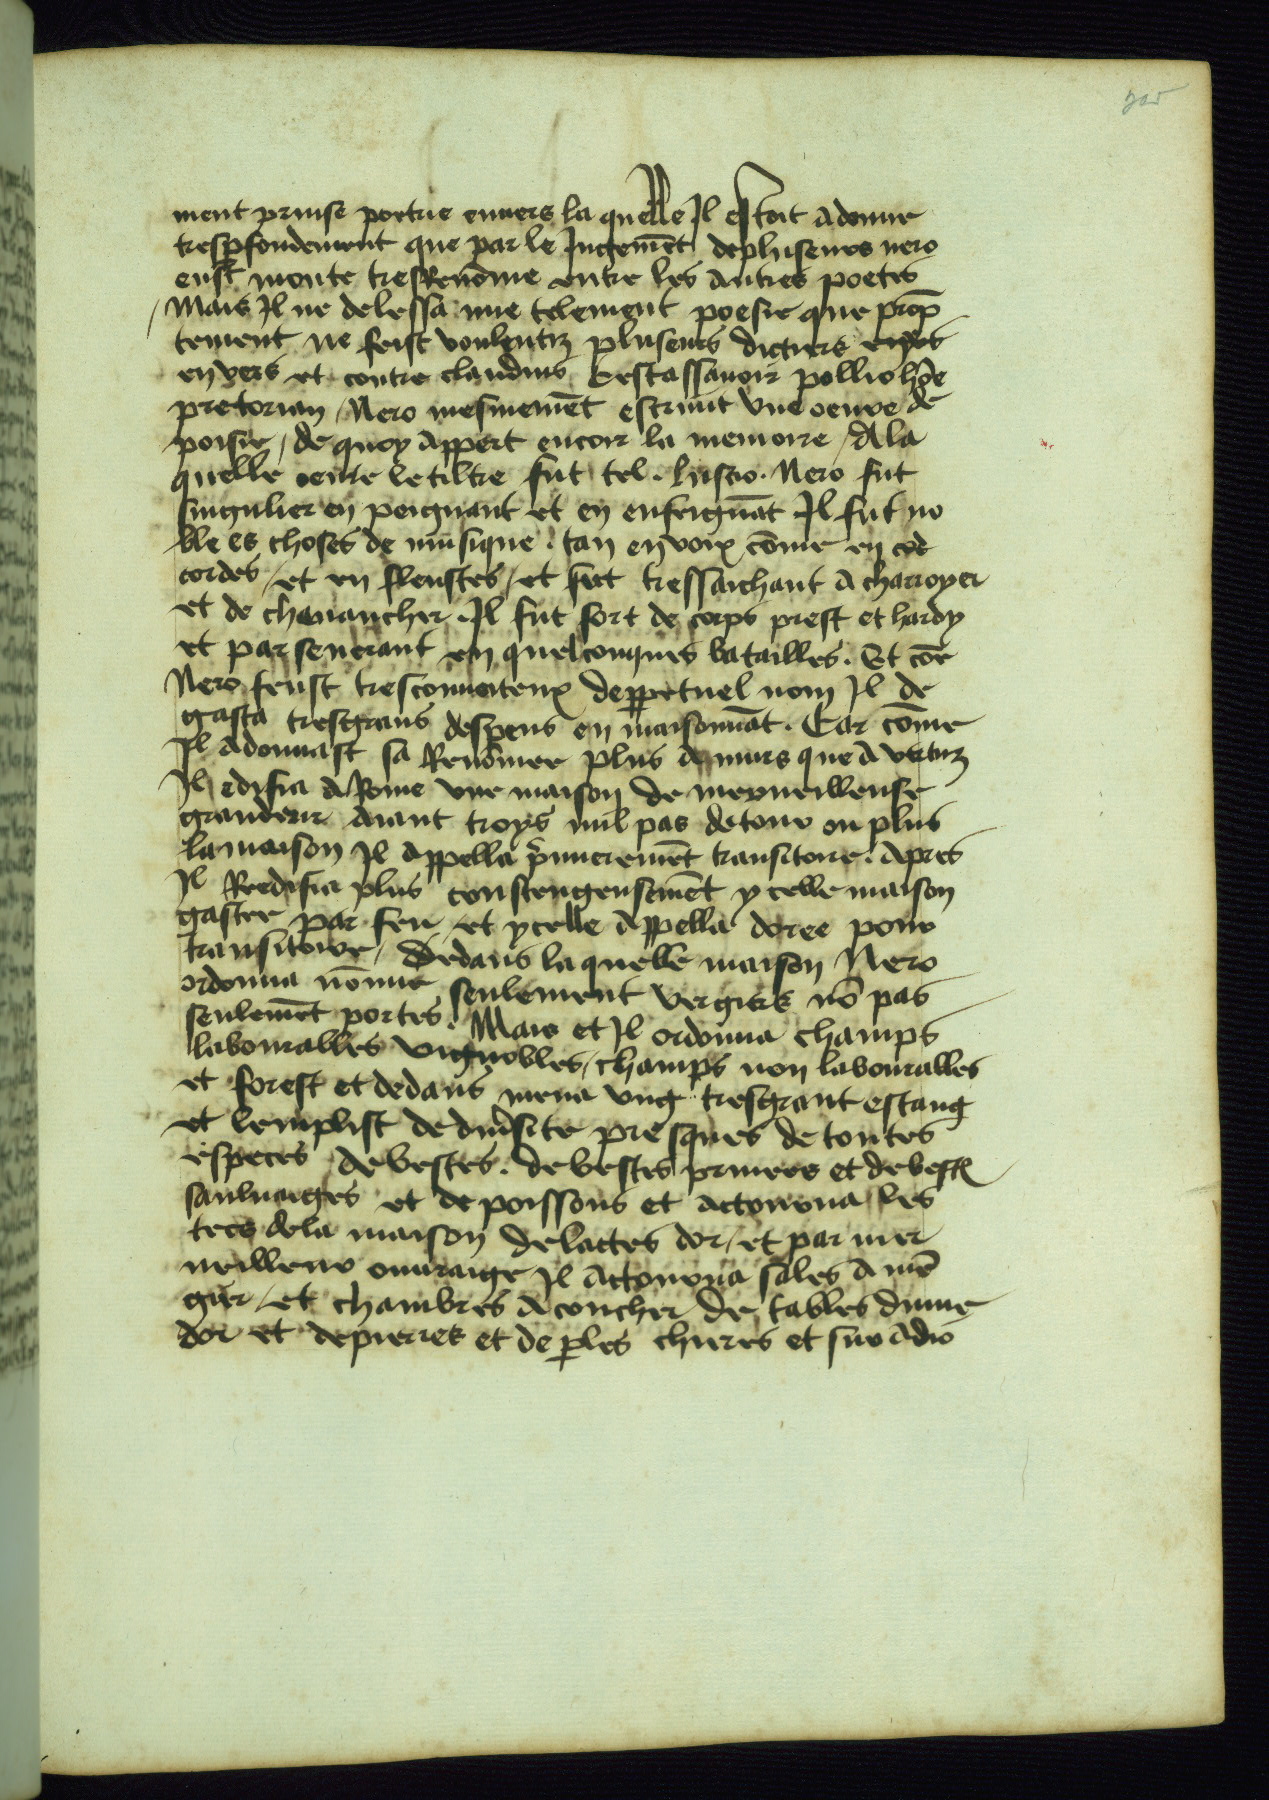 ment prinse poetrie envers la quelle Il estoit adonne
tresp̱fondement que par le Jugemēt de pluseurs nero
eust monte tresRenōme entre les autres poetes
/ Mais Il ne delessa mie telement poesie que prop̄
tement ne feist voulentiꝫ pluseurs dictiers
en vers et contre claudius Cestassavoir pollio hōe
pretorian / Nero mesmemēt escrivit vne oeuvre de
poisie / de quoy appert encor la memoire / A la
quelle oeuvre le tiltre fut tel . luscio . Nero fut
singulier en peignant et en enfrignāt Il fut no
ble es choses de musique . tan en voix cōme en
cordes / et en fleustes / et fut tressaichant a charroyer
et de chevaucher . Il fut fort de corps prest et hardy
et parseverant en quelconques batailles . Et cōe
Nero feust tresconvoiteux deꝑpetuel nom Il de
gasta tresgrans despens en maisonnāt . Car cōme
Il adonnast sa Renōmee plus a murs que a vertuꝫ
Il edifia a Rome vne maison de merveilleuse
grandeur aiant troys mil pas de tour ou plus
la maison Il appella p̄mieremēt transitoire . apres
Il Reedifia plus coustengeusemēt ycelle maison
gastee par feu / et ycelle appella doree pour
transitoire / Dedans la quelle maison Nero
ordonna nōme seulement vergiers nō pas
seulemēt portes . Mais et Il ordonna champs
labourables vignobles / champs non labourables
et forest et dedans mena vng tresgrant estang
et lemplist de div̄site presques de toutes
especes de bestes . de bestes privees et de bestes
sauluaiges et de poissons et actourna les
tecs de la maison de lactes dor / et par mer
veilleux ouvraige Il actourna sales a mē
gier / et chambres a coucher de tables divine
dor et de pierres et de ꝑles chieres et sur adio